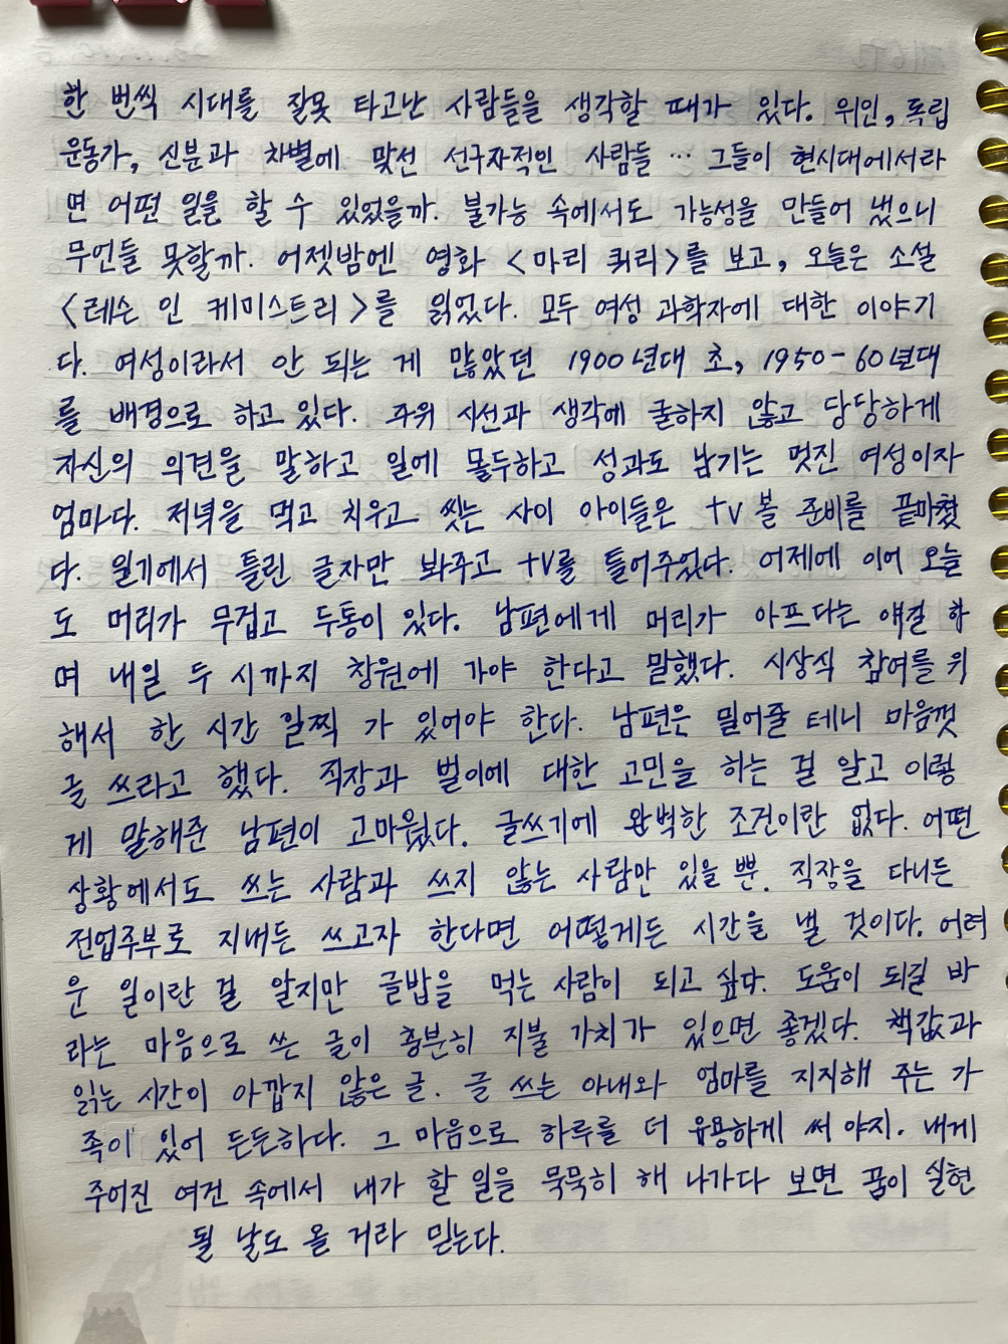 한 번씩 시대를 잘못 타고난 사람들을 생각할 때가 있다. 위인, 독립
운동가, 신분과 차별에 맞선 선구자적인 사람들 … 그들이 현시대에서라
면 어떤 일을 할 수 있었을까. 불가능 속에서도 가능성을 만들어 냈으니
무언들 못할까. 어젯밤엔 영화 <마리 퀴리>를 보고, 오늘은 소설
<레슨 인 케미스트리>를 읽었다. 모두 여성 과학자에 대한 이야기
다. 여성이라서 안 되는 게 많았던 1900년대 초, 1950-60년대
를 배경으로 하고 있다. 주위 시선과 생각에 굴하지 않고 당당하게
자신의 의견을 말하고 일에 몰두하고 성과도 남기는 멋진 여성이자
엄마다. 저녁을 먹고 치우고 씻는 사이 아이들은 tv 볼 준비를 끝마쳤
다. 일기에서 틀린 글자만 봐주고 tv를 틀어주었다. 어제에 이어 오늘
도 머리가 무겁고 두통이 있다. 남편에게 머리가 아프다는 얘길 하
며 내일 두 시까지 창원에 가야 한다고 말했다. 시상식 참여를 위
해서 한 시간 일찍 가 있어야 한다. 남편은 밀어줄 테니 마음껏
글 쓰라고 했다. 직장과 벌이에 대한 고민을 하는 걸 알고 이렇
게 말해준 남편이 고마웠다. 글쓰기에 완벽한 조건이란 없다. 어떤
상황에서도 쓰는 사람과 쓰지 않는 사람만 있을 뿐. 직장을 다니든
전업주부로 지내든 쓰고자 한다면 어떻게든 시간을 낼 것이다. 어려
운 일이란 걸 알지만 글밥을 먹는 사람이 되고 싶다. 도움이 되길 바
라는 마음으로 쓴 글이 충분히 지불 가치가 있으면 좋겠다. 책값과
읽는 시간이 아깝지 않은 글. 글 쓰는 아내와 엄마를 지지해 주는 가
족이 있어 든든하다. 그 마음으로 하루를 더 유용하게 써 야지. 내게
주어진 여건 속에서 내가 할 일을 묵묵히 해 나가다 보면 꿈이 실현
될 날도 올 거라 믿는다.